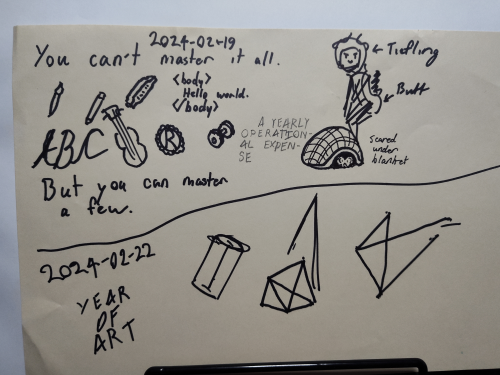 2024-02-19
You can't master it all.
<body>
Hello world.
</body>
ABC
R
A YEARLY
OPERATION-
AL EXPEN-
SE
Tiefling
Butt
Scared
under
blanket
But you can master
a few.
2024-02-22
YEAR
OF
ART